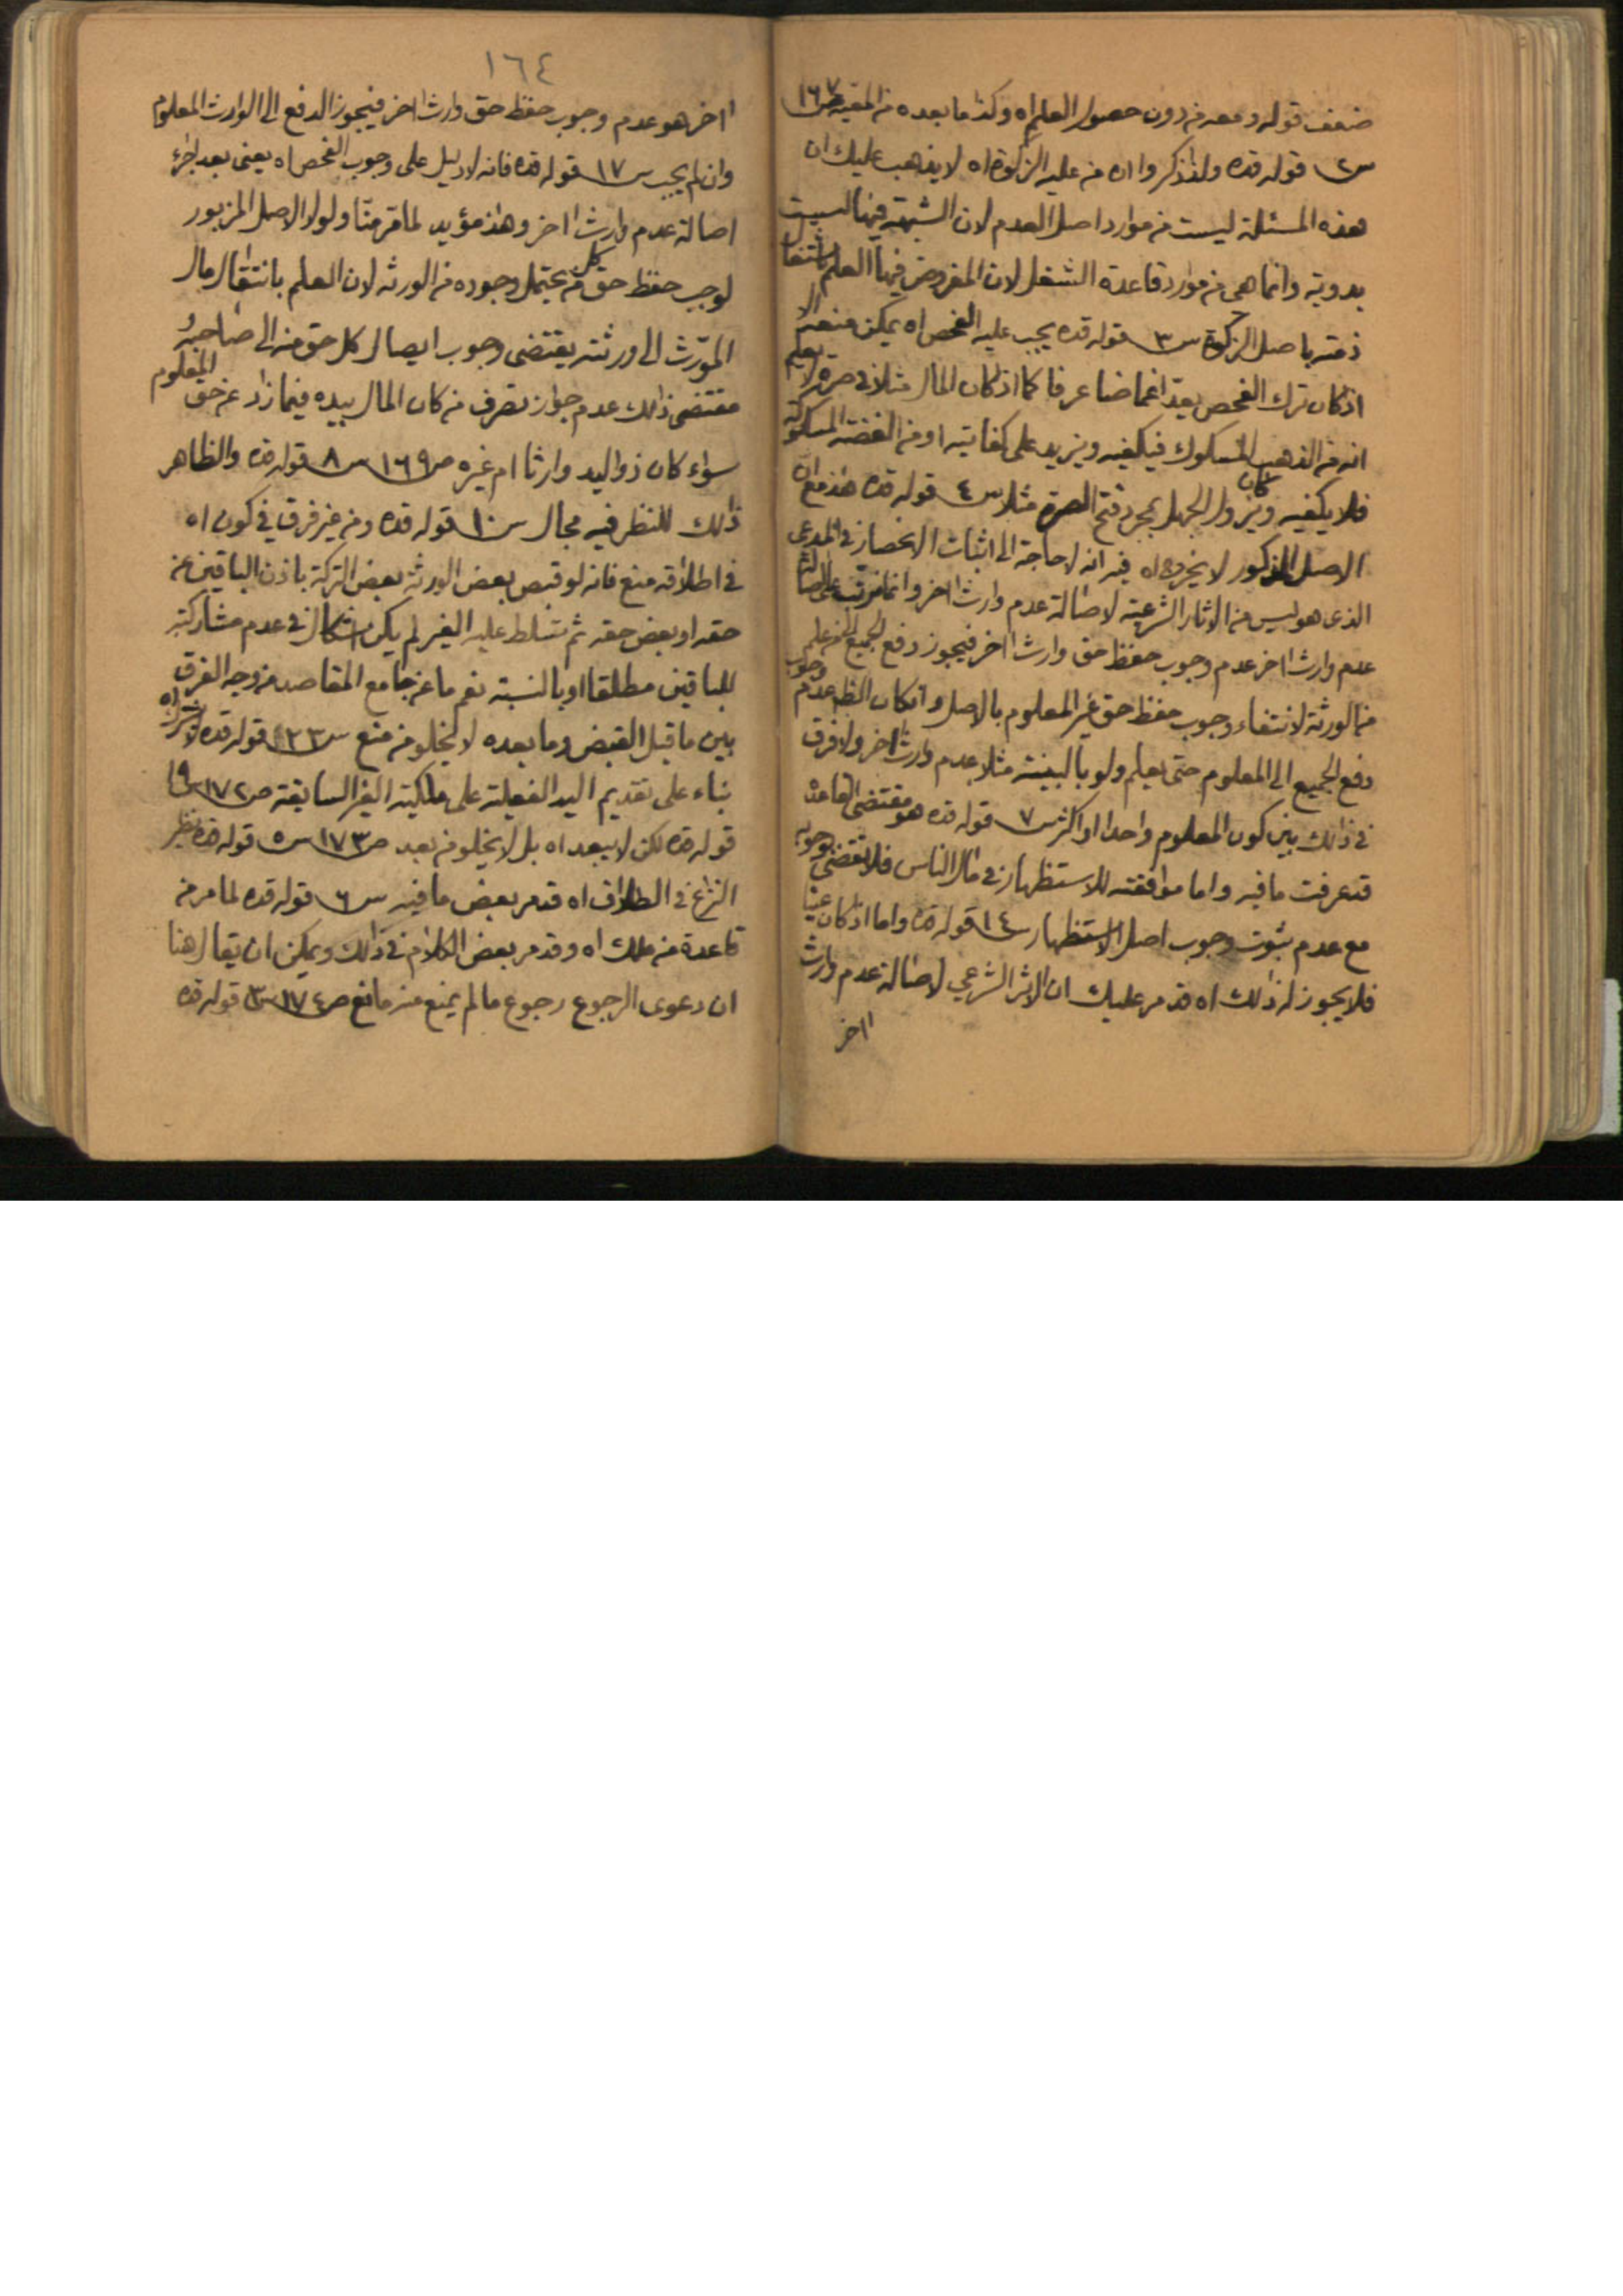 ضعف قوله ومعه من دون حصول العلم اه وكذا ما بعده من المقيه ص١٦٧
س٢ قوله قده ولذا ذكروا ان من عليه الزكوة اه لا يذهب عليك ان
هذه المسئلة ليست من موارد اصل العدم لان الشبهة فيها ليست
بدوية وانما هى من موارد قاعدة الشغل لان المفروض فيها العلم باشتغال
ذمته باصل الزكوة س٣ قوله قده يجب عليه الفحص اه يمكن منعه الا
اذ كان ترك الفحص يعد اغماضا عرفا كما اذ كان المال مثلا فى صرة لا يعلم
انه من الذهب المسكوك فيكفيه ويزيد على كفايته او من الفضة المسكوكة
فلا يكفيه وكان يزول الجهل بمجرد فتح الصرة مثلا س٤ قوله قده هذا مع ان
الاصل المذكور لا يحرز اه فيه انه لا حاجة الى اثبات الانحصار فى المدعى
الذى هو ليس من الاثار الشرعية لاصالة عدم وارث اخر وانما يترتب على اصالة
عدم وارث اخر عدم وجوب حفظ حق وارث اخر فيجوز دفع الجميع الى من علم
من الورثة لانتفاء وجوب حفظ حق غير المعلوم بالاصل وان كان الظ عدم وجوب
دفع الجميع الى المعلوم حتى يعلم ولو بالبينة مثلا عدم وارث اخر ولا فرق
فى ذلك بين كون المعلوم واحدا او اكثر س٧ قوله قده هو مقتضى القاعدة
قد عرفت ما فيه واما موافقته للاستظهار فى مال الناس فلا تقتضى وجوبه
مع عدم ثبوت وجوب اصل الاستظهار س١٤ قوله قده واما اذ كان عينا
فلا يجوز له ذلك اه قد مر عليك ان الاثر الشرعي لاصالة عدم وارث
اخر
١٦٤
اخر هو عدم وجوب حفظ حق وارث اخر فيجوز الدفع الى الوارث المعلوم
وان لم يجب س١٧ قوله قده فانه لا دليل على وجوب الفحص اه يعنى بعد اجراء
اصالة عدم وارث اخر وهذا مؤيد لما مر منا ولولا الاصل المزبور
لوجب حفظ حق كل من يحتمل وجوده من الورثه لان العلم بانتقال مال
المورّث الى ورثته يقتضى وجوب ايصال كل حق منه الى صاحبه و
مقتضى ذلك عدم جواز تصرف من كان المال بيده فيما زاد عن حق المعلوم
سواء كان ذو اليد وارثا ام غيره ص١٦٩ س٨ قوله قده والظاهر
ذلك للنظر فيه مجال س١٠ قوله قده ومن غير فرق فى كون اه
فى اطلاقه منع فانه لو قبض بعض الورثة بعض التركة باذن الباقين عن
حقه او بعض حقه ثم تسلط عليه الغير لم يكن اشكال فى عدم مشاركته
للباقين مطلقا او بالنسبة نعم ما عن جامع المقاصد من وجه الفرق
بين ما قبل القبض وما بعده لا يخلو من منع س٢٣ قوله قده لاشتراك اه
بناء على تقديم اليد الفعلية على ملكية الغير السابقة ص١٧٢ س١٩
قوله قده لكن لا يبعد اه بل لا يخلو من بعد ص١٧٣ س٥ قوله قده نظير
النزاع فى الطلاق اه قد مر بعض ما فيه س٦ قوله قده لما مر من
قاعدة من ملك اه وقد مر بعض الكلام فى ذلك ويمكن ان يقال هنا
ان دعوى الرجوع رجوع ما لم يمنع عنه مانع ص١٧٤ س٣ قوله قده